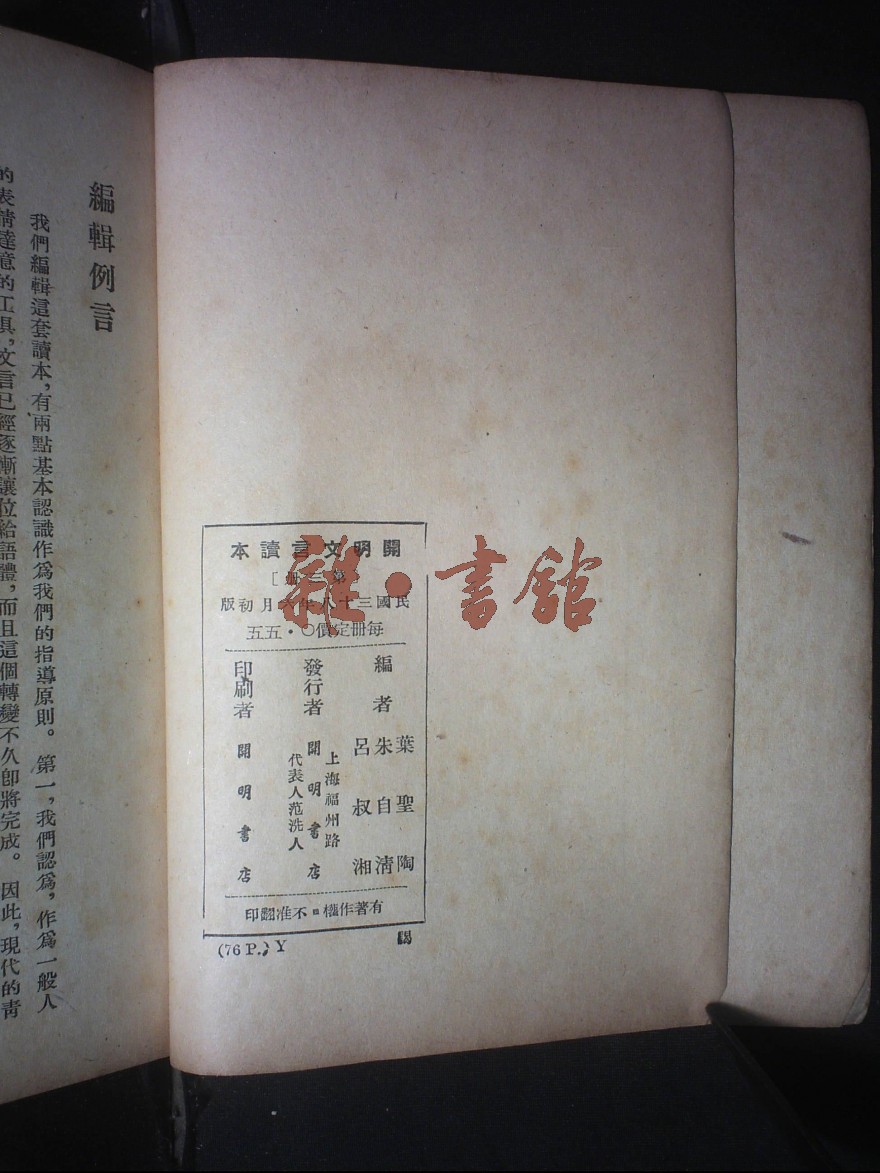 開明文言讀本
第三冊]
民國三十八年六月初版
每冊定價〇・五五
編者
葉聖陶
朱自清
呂叔湘
發行者
上海福州路
開明書店
代表人范洗人
印刷者
開明書店
有著作權・不准翻印
(76 P.) Y
雜・書館
編輯例言
我們編輯這套讀本，有兩點基本認識作爲我們的指導原則。第一，我們認爲，作爲一般人
的表情達意的工具，文言已經逐漸讓位給語體，而且這個轉變不久卽將完成。因此，現代的靑